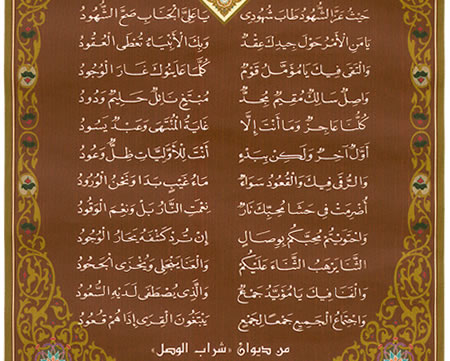 حيث عز الشهود طاب شهودي يا علي الجناب صح الشهود
يا من الأمر حول جيدك عقد وبك الأنبياء تعطى العقود
والتقى فيك يا مؤمل قوم كلما عاينوك غار الوجود
واصل سالك مقيم مجد مبتغ نائل حليم ودود
كلنا عاجز وما أنت إلا غاية المنتهى وعبد يسود
أول آخر ولكن ببدء أنت للأوليات ظل وعود
والترقي فيك والقعود سواء ماء غيب بدا ونحن الورود
أضرمت في حشا محبيك نار نعمت النار بل ونعم الوقود
واحتويتم محبكم بوصال إن ترد كشفه يحار الوجود
الثنا يرهب الثناء عليكم والعنا ينجلي ويخزى الجحود
واللقا فيك يا مؤيد جمع والذي يصطفى لديه السعود
واجتماع الجميع جمعا لجمع يبتغون القرى إذا هم قعود
من ديوان «شراب الوصل»